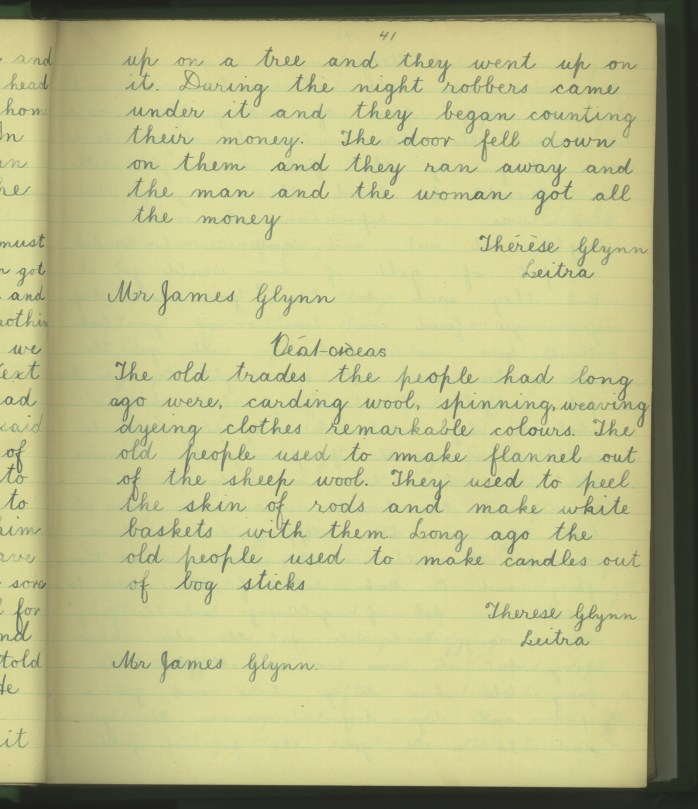 41
up on a tree and they went up on
it. During the night robbers came
under it and they began counting
their money. The door fell down
on them and they ran away and
the man and the woman got all
the money
Thérèse Glynn
Leitra
Mr James Glynn
The old trades the people had long
ago were, carding wool, spinning, weaving
dyeing clothes remarkable colours. The
old people used to make flannel out
of the sheep wool. They used to peel
the skin of rods and make white
baskets with them. Long ago the
old people used to make candles out
of bog sticks
Therese Glynn
Leitra
Mr James Glynn.
and
head
hom
In
an
he
must
n got
and
nothin
we
text
ad
said
of
to
to
him
ave
sore
for
nd
told
He
it